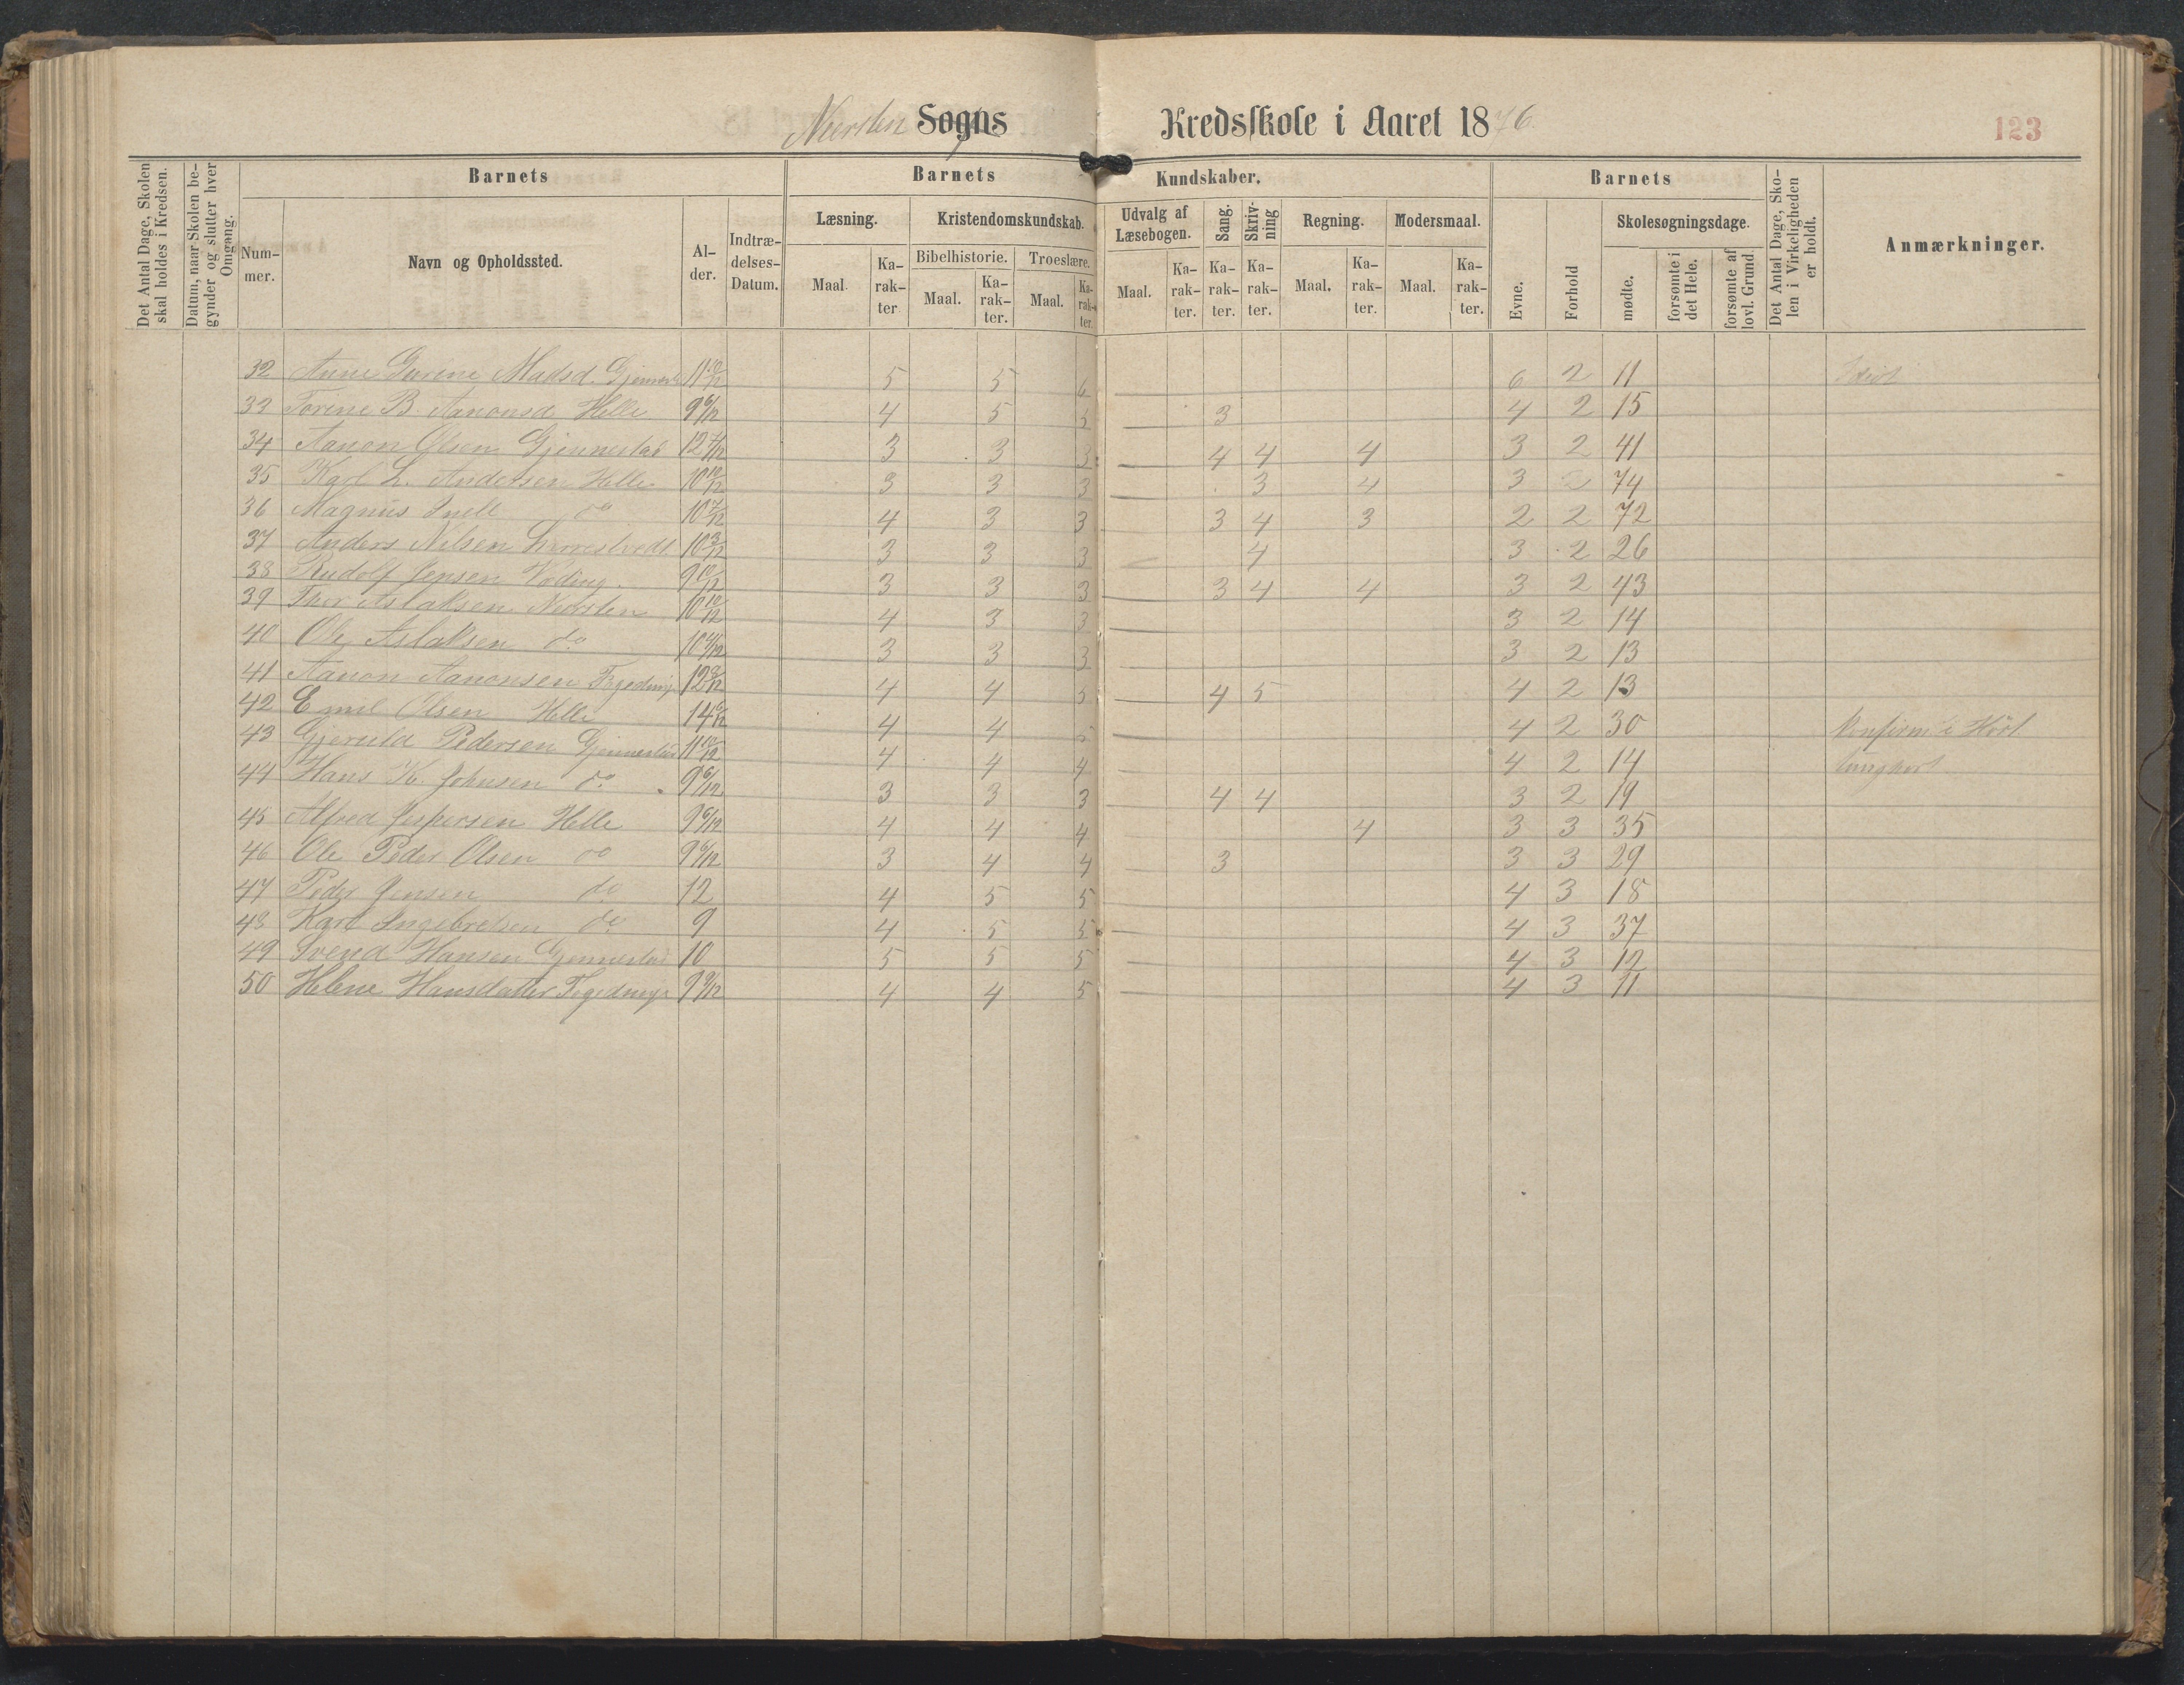 Nærsten Sogns Kredsskole i Aaret 1876.
123
Det Antal Dage, Skolen skal holdes i Kredsen.
Datum, naar Skolen begynder og slutter hver Omgang.
Barnets
Nummer.
Navn og Opholdssted.
Alder.
Indtrædelses-Datum.
Barnets Kundskaber.
Læsning.
Maal.
Karakter
Kristendomskundskab.
Bibelhistorie.
Maal.
Karakter.
Troeslære.
Maal.
Karakter.
Udvalg af Læsebogen.
Maal.
Karakter.
Sang.
Karakter.
Skrivning
Karakter.
Regning.
Maal.
Karakter.
Modersmaal.
Maal.
Karakter.
Barnets
Evne.
Forhold
Skolesøgningsdage.
mødte.
forsømte i det Hele.
forsømte af lovl. Grund
Det Antal Dage, Skolen i Virkeligheden er holdt.
Anmærkninger.
32 Anne Gurine Madsd. 11 10/12 5 5 6 6 2 11 Idiot
33 Torine B. Aanonsd Helle 9 6/12 4 5 5 3 4 2 15
34 Aanon Olsen Gjennestad 12 7/12 3 3 3 4 4 4 3 2 41
35 Karl L. Andersen Helle 10 10/12 3 3 3 3 4 3 2 74
36 Magnus Snell do 10 7/12 4 3 3 3 4 3 2 2 72
37 Anders Nilsen 10 3/12 3 3 3 4 3 2 26
38 Rudolf Jensen Voding. 9 10/12 3 3 3 3 4 4 3 2 43
39 Thor Aslaksen Nærsten 10 10/12 4 3 3 3 2 14
40 Ole Aslaksen do 10 4/12 3 3 3 3 2 13
41 Aanon Aanonsen 12 8/12 4 4 5 4 5 4 2 13
42 Emil Olsen Helle 14 6/12 4 4 5 4 2 30 Konfirm. i Høst
43 Gjeruld Pedersen Gjennestad 11 10/12 4 4 4 4 2 14 tunghørt
44 Hans K. Johnsen do. 9 6/12 3 3 3 4 4 3 2 19
45 Alfred Jespersen Helle 9 6/12 4 4 4 4 3 3 35
46 Ole Peder Olsen do 9 6/12 3 4 4 3 3 3 29
47 Peder Jensen do 12 4 5 5 4 3 18
48 Karl Ingebretsen do 9 4 5 5 4 3 37
49 Svend Hansen Gjennestad 10 5 5 5 4 3 12
50 Helene Hansdatter 9 9/12 4 4 5 4 3 11